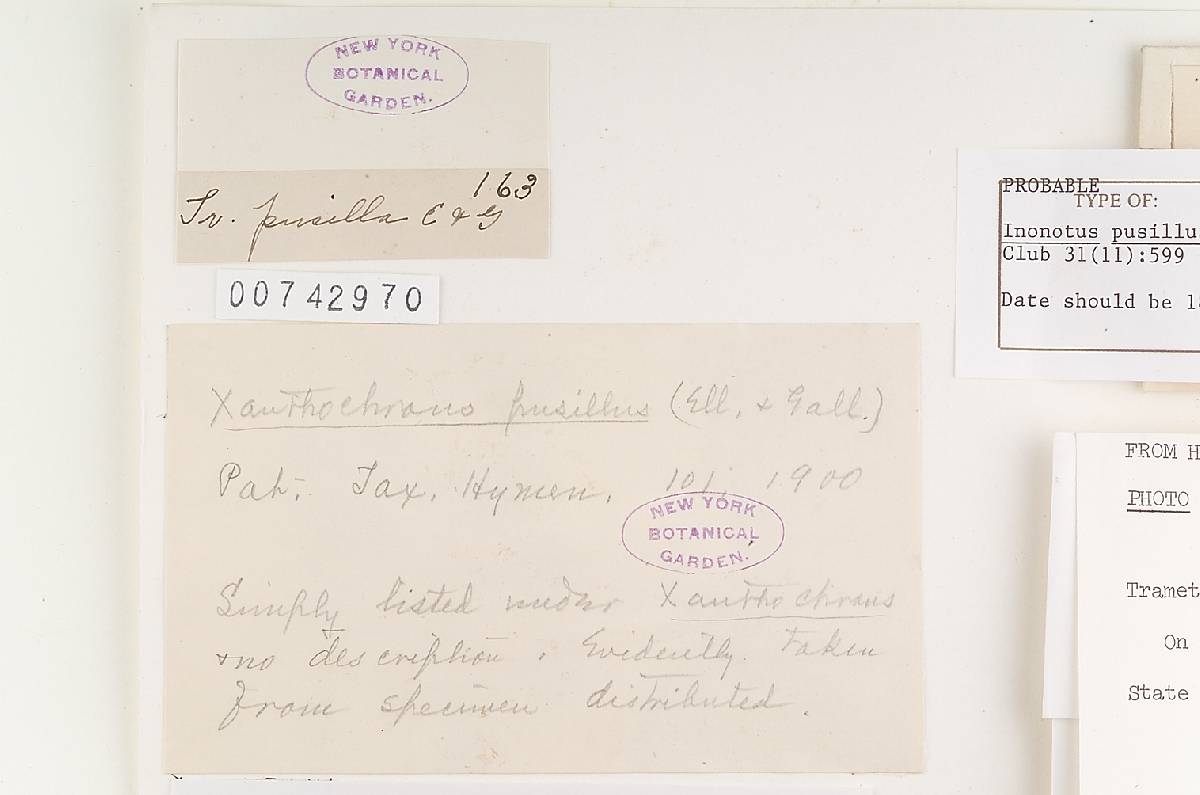 NEW YORK
BOTANICAL
GARDEN.
163
Tr. pusilla E & G
00742970
Xanthochrous pusillus (Ell. & Gall.)
Pat. Tax. Hymen. 101; 1900
NEW YORK
BOTANICAL
GARDEN.
Simply listed under Xanthochrous
& no description. Evidently taken
from specimen distributed.
PROBABLE
TYPE OF:
Inonotus pusillus
Club 31(11):599
Date should be
FROM H
PHOTO
Tramet
On
State